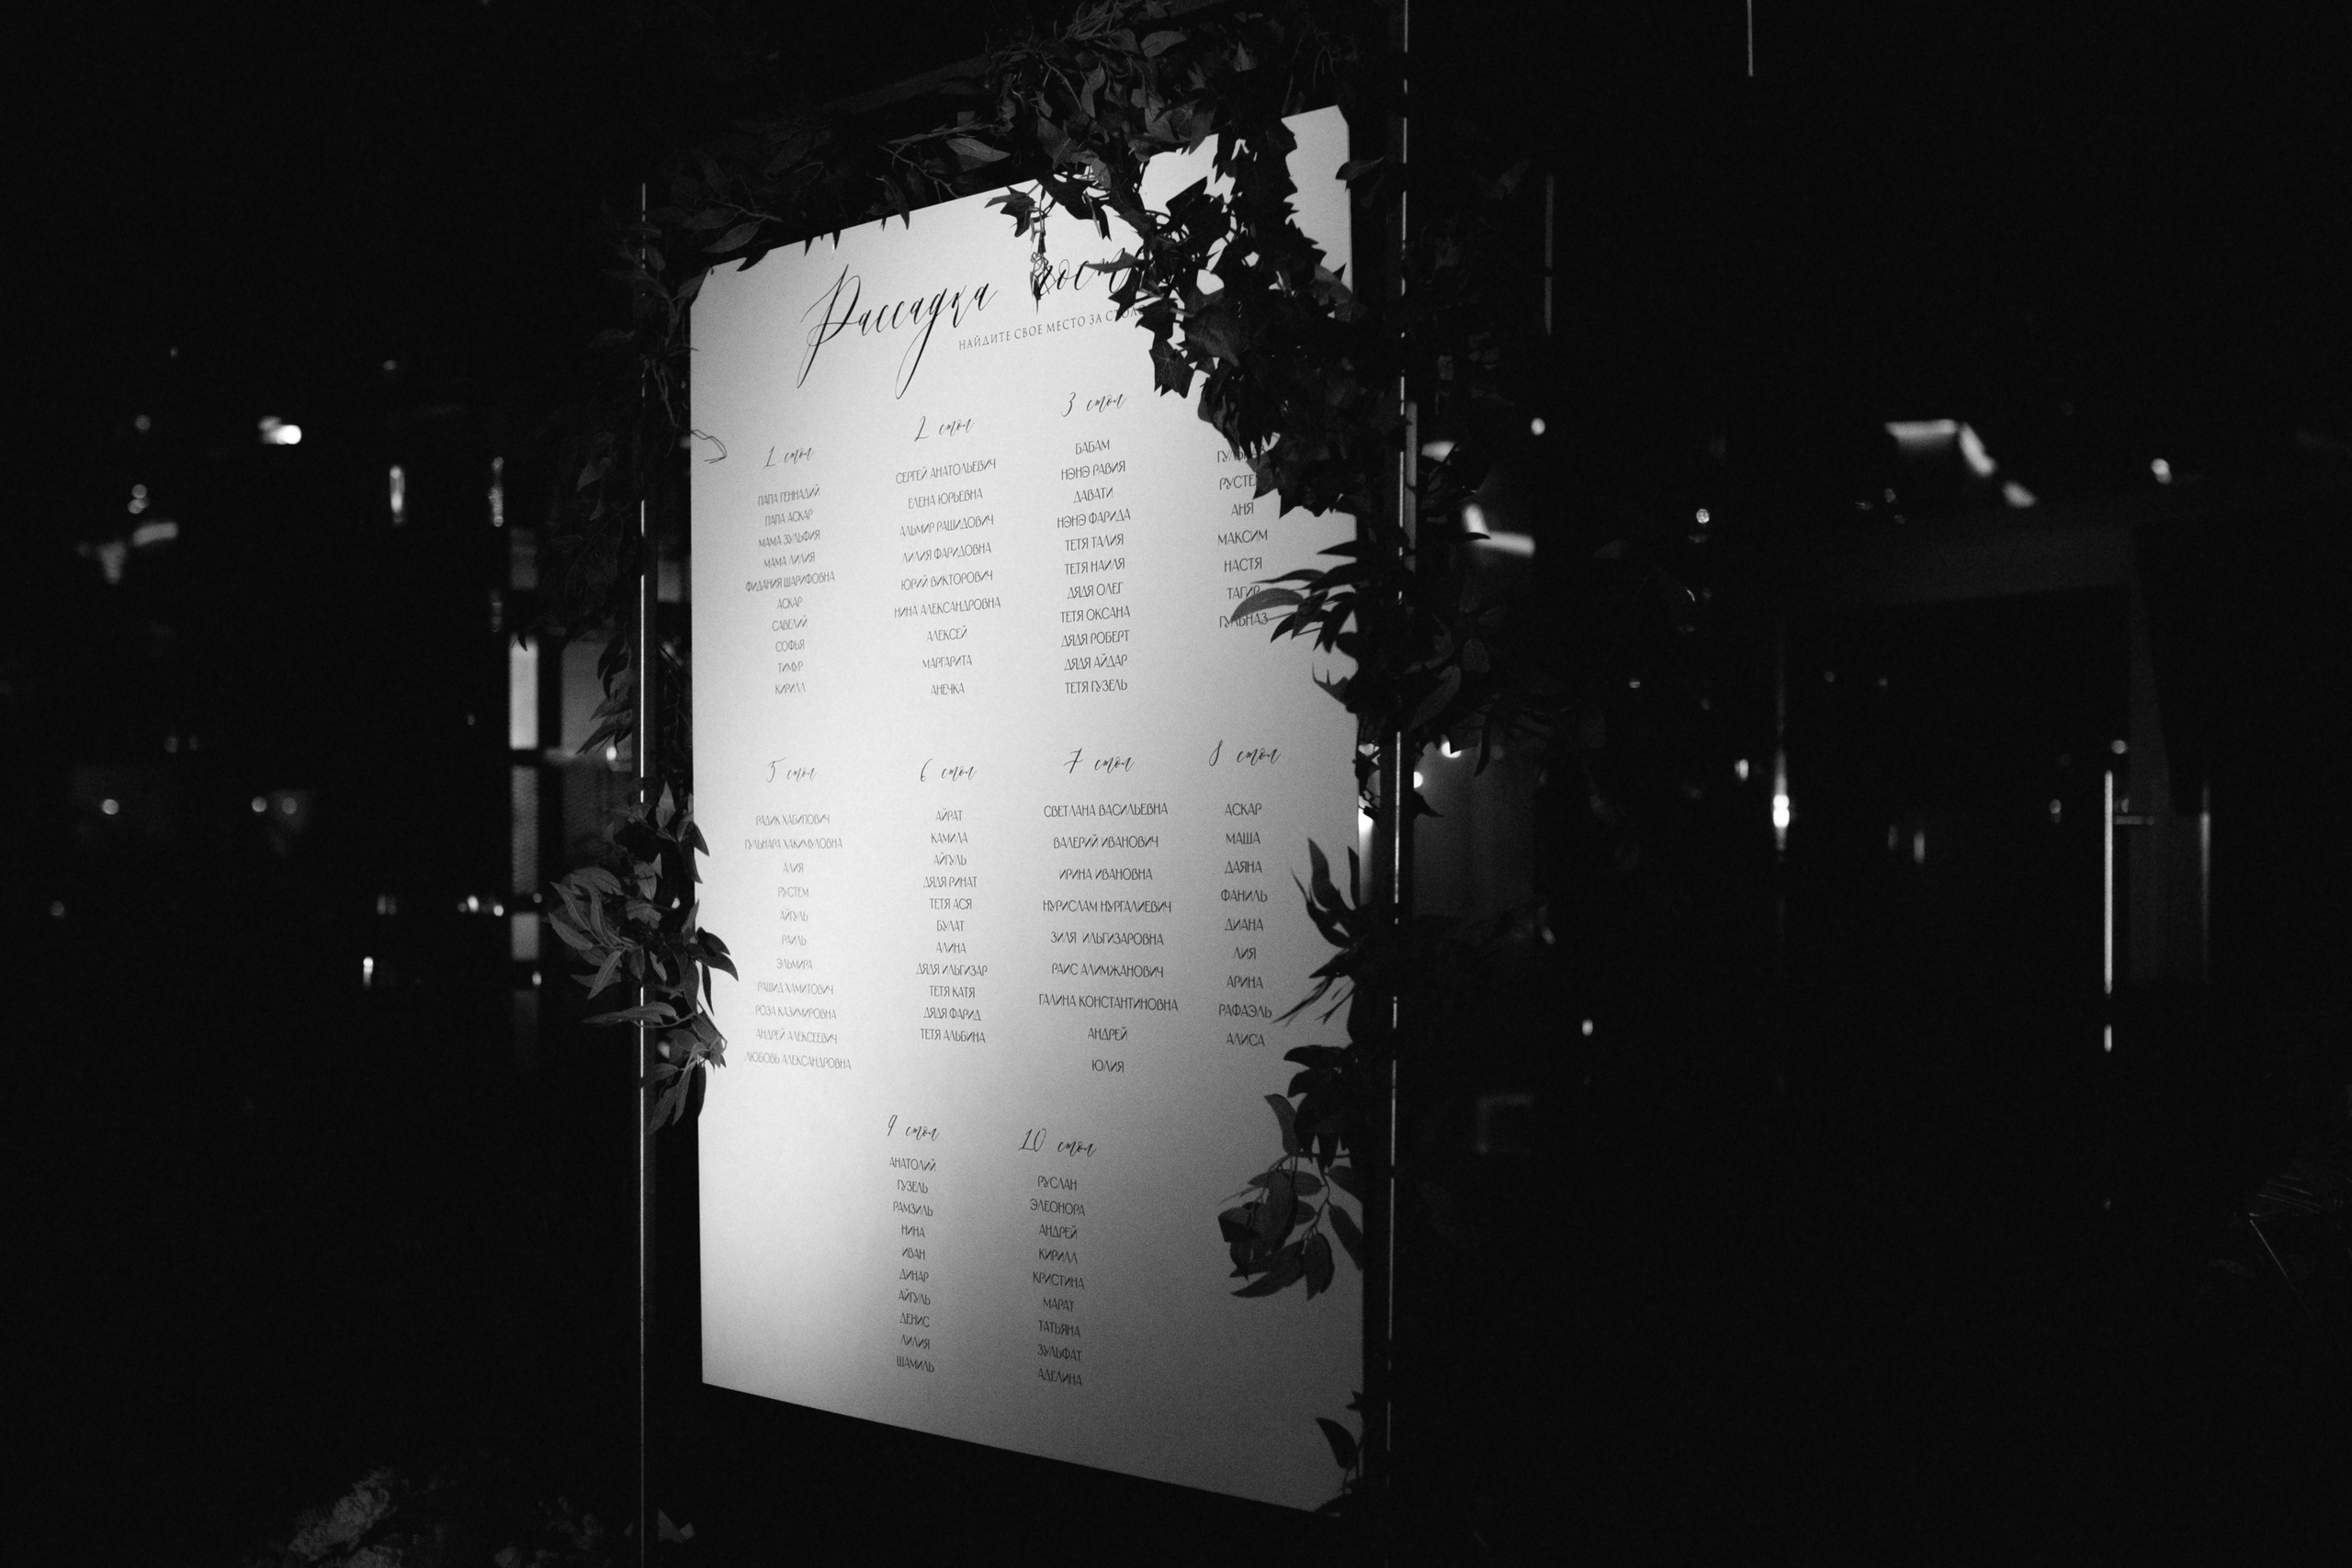 Рассадка
НАЙДИТЕ СВОЕ МЕСТО ЗА
1 стол
ПАПА ГЕННАДИЙ
ПАПА АСКАР
МАМА ЗУЛЬФИЯ
МАМА ЛИЛИЯ
ФИДАНИЯ ШАРИФОВНА
АСКАР
САВЕЛИЙ
СОФЬЯ
ТИМУР
КИРИЛЛ
2 стол
СЕРГЕЙ АНАТОЛЬЕВИЧ
ЕЛЕНА ЮРЬЕВНА
АЛЬМИР РАШИДОВИЧ
ЛИЛИЯ ФАРИДОВНА
ЮРИЙ ВИКТОРОВИЧ
НИНА АЛЕКСАНДРОВНА
АЛЕКСЕЙ
МАРГАРИТА
АНЕЧКА
3 стол
БАБАМ
НЭНЭ РАВИЯ
ДАВАТИ
НЭНЭ ФАРИДА
ТЕТЯ ТАЛИЯ
ТЕТЯ НАИЛЯ
ДЯДЯ ОЛЕГ
ТЕТЯ ОКСАНА
ДЯДЯ РОБЕРТ
ДЯДЯ АЙДАР
ТЕТЯ ГУЗЕЛЬ
АНЯ
МАКСИМ
НАСТЯ
ТАГИР
ГУЛЬНАЗ
5 стол
РАДИК ХАБИПОВИЧ
ГУЛЬНАРА ХАКИМУЛОВНА
АЛИЯ
РУСТЕМ
АЙГУЛЬ
РАИЛЬ
ЭЛЬМИРА
РАШИД ХАМИТОВИЧ
РОЗА КАЗИМИРОВНА
АНДРЕЙ АЛЕКСЕЕВИЧ
ЛЮБОВЬ АЛЕКСАНДРОВНА
6 стол
АЙРАТ
КАМИЛА
АЙГУЛЬ
ДЯДЯ РИНАТ
ТЕТЯ АСЯ
БУЛАТ
АЛИНА
ДЯДЯ ИЛЬГИЗАР
ТЕТЯ КАТЯ
ДЯДЯ ФАРИД
ТЕТЯ АЛЬБИНА
7 стол
СВЕТЛАНА ВАСИЛЬЕВНА
ВАЛЕРИЙ ИВАНОВИЧ
ИРИНА ИВАНОВНА
НУРИСЛАМ НУРГАЛИЕВИЧ
ЗИЛЯ ИЛЬГИЗАРОВНА
РАИС АЛИМЖАНОВИЧ
ГАЛИНА КОНСТАНТИНОВНА
АНДРЕЙ
ЮЛИЯ
8 стол
АСКАР
МАША
ДАЯНА
ФАНИЛЬ
ДИАНА
ЛИЯ
АРИНА
РАФАЭЛЬ
АЛИСА
9 стол
АНАТОЛИЙ
ГУЗЕЛЬ
РАМЗИЛЬ
НИНА
ИВАН
ДИНАР
АЙГУЛЬ
ДЕНИС
ЛИЛИЯ
ШАМИЛЬ
10 стол
РУСЛАН
ЭЛЕОНОРА
АНДРЕЙ
КИРИЛЛ
КРИСТИНА
МАРАТ
ТАТЬЯНА
ЗУЛЬФАТ
АДЕЛИНА